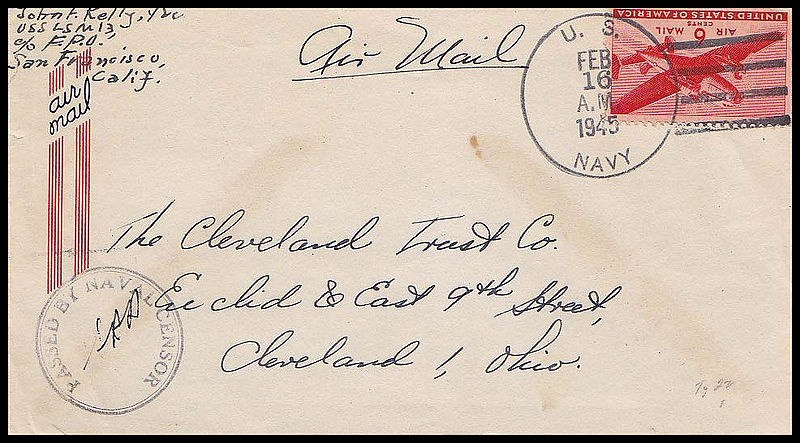 John F. Kelly, Y2c
USS LSM 13,
c/o F.P.O.
San Francisco,
Calif.
air
mail
Air Mail
U. S.
FEB
16
A.M
1945
NAVY
UNITED STATES OF AMERICA
6
CENTS
AIR MAIL
The Cleveland Trust Co.
Euclid & East 9th Street,
Cleveland 1, Ohio.
PASSED BY NAVAL CENSOR